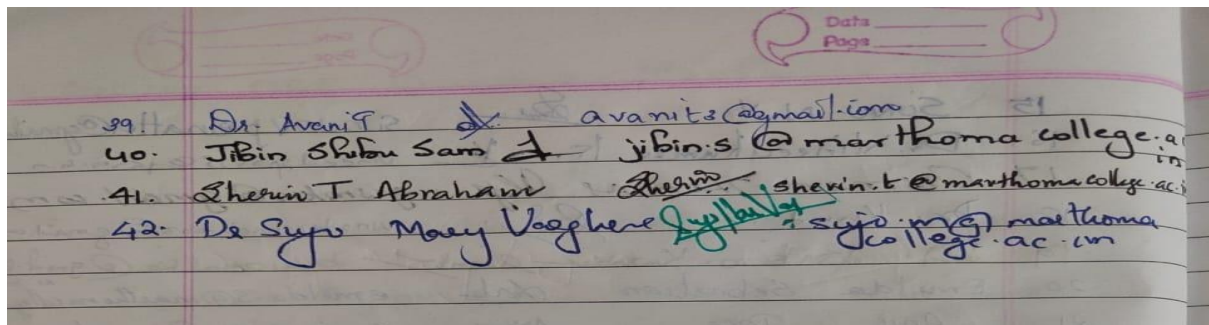 Date
Page
39. Dr. Avani T avanit3@gmail.com
40. Jibin Shibu Sam jibin.s@marthoma college.ac.in
41. Sherin T Abraham Sherin sherin.t@marthomacollege.ac.i
42. Dr Sujo Mary Varghese : sujo.m@marthoma
college.ac.in